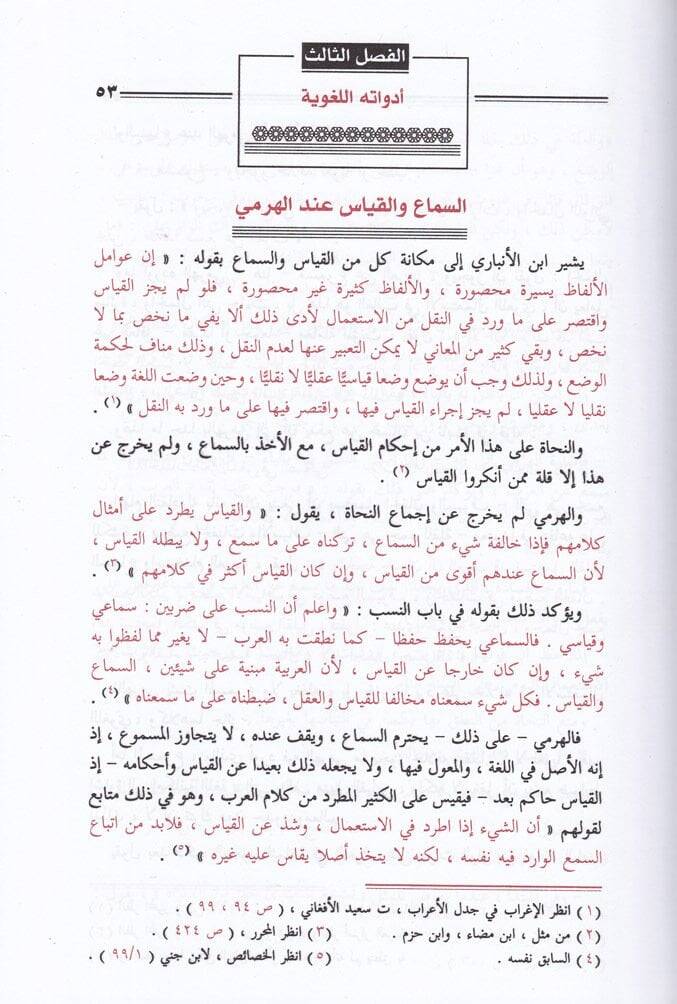 الفصل الثالث
أدواته اللغوية
٥٣
السماع والقياس عند الهرمي
يشير ابن الأنباري إلى مكانة كل من القياس والسماع بقوله : « إن عوامل
الألفاظ يسيرة محصورة ، والألفاظ كثيرة غير محصورة ، فلو لم يجز القياس
واقتصر على ما ورد في النقل من الاستعمال لأدى ذلك ألا يفي ما نخص بما لا
نخص ، وبقي كثير من المعاني لا يمكن التعبير عنها لعدم النقل ، وذلك مناف لحكمة
الوضع ، ولذلك وجب أن يوضع وضعا قياسيًّا عقليًّا لا نقليًّا ، وحين وضعت اللغة وضعا
نقليا لا عقليا ، لم يجز إجراء القياس فيها ، واقتصر فيها على ما ورد به النقل » (١) .
والنحاة على هذا الأمر من إحكام القياس ، مع الأخذ بالسماع ، ولم يخرج عن
هذا إلا قلة ممن أنكروا القياس (٢) .
والهرمي لم يخرج عن إجماع النحاة ، يقول : « والقياس يطرد على أمثال
كلامهم فإذا خالفة شيء من السماع ، تركناه على ما سمع ، ولا يبطله القياس ،
لأن السماع عندهم أقوى من القياس ، وإن كان القياس أكثر في كلامهم » (٣) .
ويؤكد ذلك بقوله في باب النسب : « واعلم أن النسب على ضربين : سماعي
وقياسي . فالسماعي يحفظ حفظا – كما نطقت به العرب – لا يغير مما لفظوا به
شيء ، وإن كان خارجا عن القياس ، لأن العربية مبنية على شيئين ، السماع
والقياس . فكل شيء سمعناه مخالفا للقياس والعقل ، ضبطناه على ما سمعناه » (٤) .
فالهرمي – على ذلك – يحترم السماع ، ويقف عنده ، لا يتجاوز المسموع ، إذ
إنه الأصل في اللغة ، والمعول فيها ، ولا يجعله ذلك بعيدا عن القياس وأحكامه – إذ
القياس حاكم بعد – فيقيس على الكثير المطرد من كلام العرب ، وهو في ذلك متابع
لقولهم « أن الشيء إذا اطرد في الاستعمال ، وشذ عن القياس ، فلابد من اتباع
السمع الوارد فيه نفسه ، لكنه لا يتخذ أصلا يقاس عليه غيره » (٥) .
(١) انظر الإغراب في جدل الأعراب ، ت سعيد الأفغاني ، ( ص ٩٤ ، ٩٩ ) .
(٢) من مثل ، ابن مضاء ، وابن حزم . (٣) انظر المحرر ، ( ص ٤٢٤ ) .
(٤) السابق نفسه . (٥) انظر الخصائص ، لابن جني ( ٩٩/١ ) .